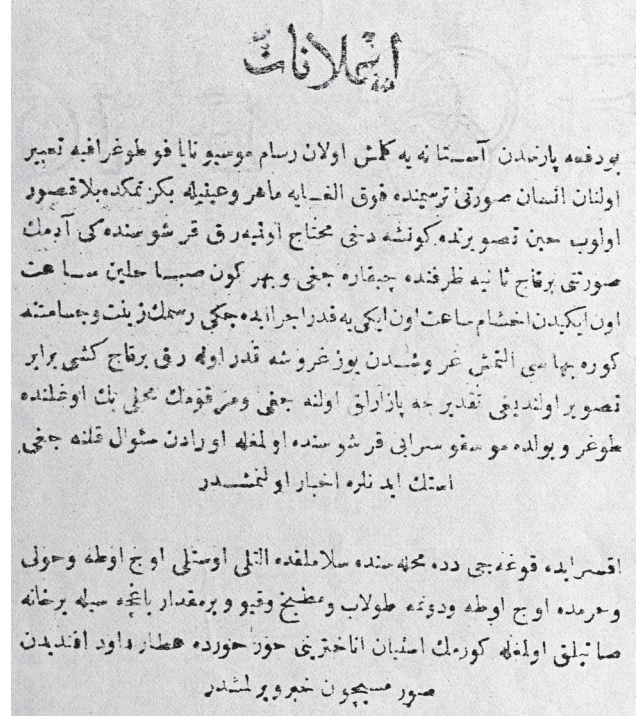 اعلانات
بو دفعه پارسدن آستانه يه كلمش اولان رسام موسيو نايا فوطوغرافيه تعبير
اولنان انسان صورتى ترسيمنده فوق الغايه ماهر وعينيله بكزتمكده بلاقصور
اولوب حين تصويرنده كونشه دخى محتاج اولميه رق قرشوسنده كى آدمك
صورتنى برقاچ ثانيه ظرفنده چيقاره جغى و بهر كون صباحلين ساعت
اون ايكيدن اخشام ساعت اون ايكى يه قدر اجرا ايده جكى رسمك زينت وجسامتنه
كوره بهاسى التمش غروشدن يوز غروشه قدر اوله رق برقاچ كشى برابر
تصوير اولنديغى تقديرجه پازارلق اولنه جغى ومرقومك محلى بك اوغلنده
طوغرويولده موسقو سرايى قرشوسنده اولمغله اورادن سئوال قلنه جغى
استك ايدنلره اخبار اولنمشدر
اقسرايده قوغه جى دده محله سنده سلاملقده التلى اوستلى اوچ اوطه وحولى
وحرمده اوچ اوطه ودونمه طولاب ومطبخ وقيو وبرمقدار باغچه سيله برخانه
صاتيلق اولمغله كورمك استيان اناخترينى خورخورده عطار داود افنديدن
صورمسيچون خبر ويرلمشدر